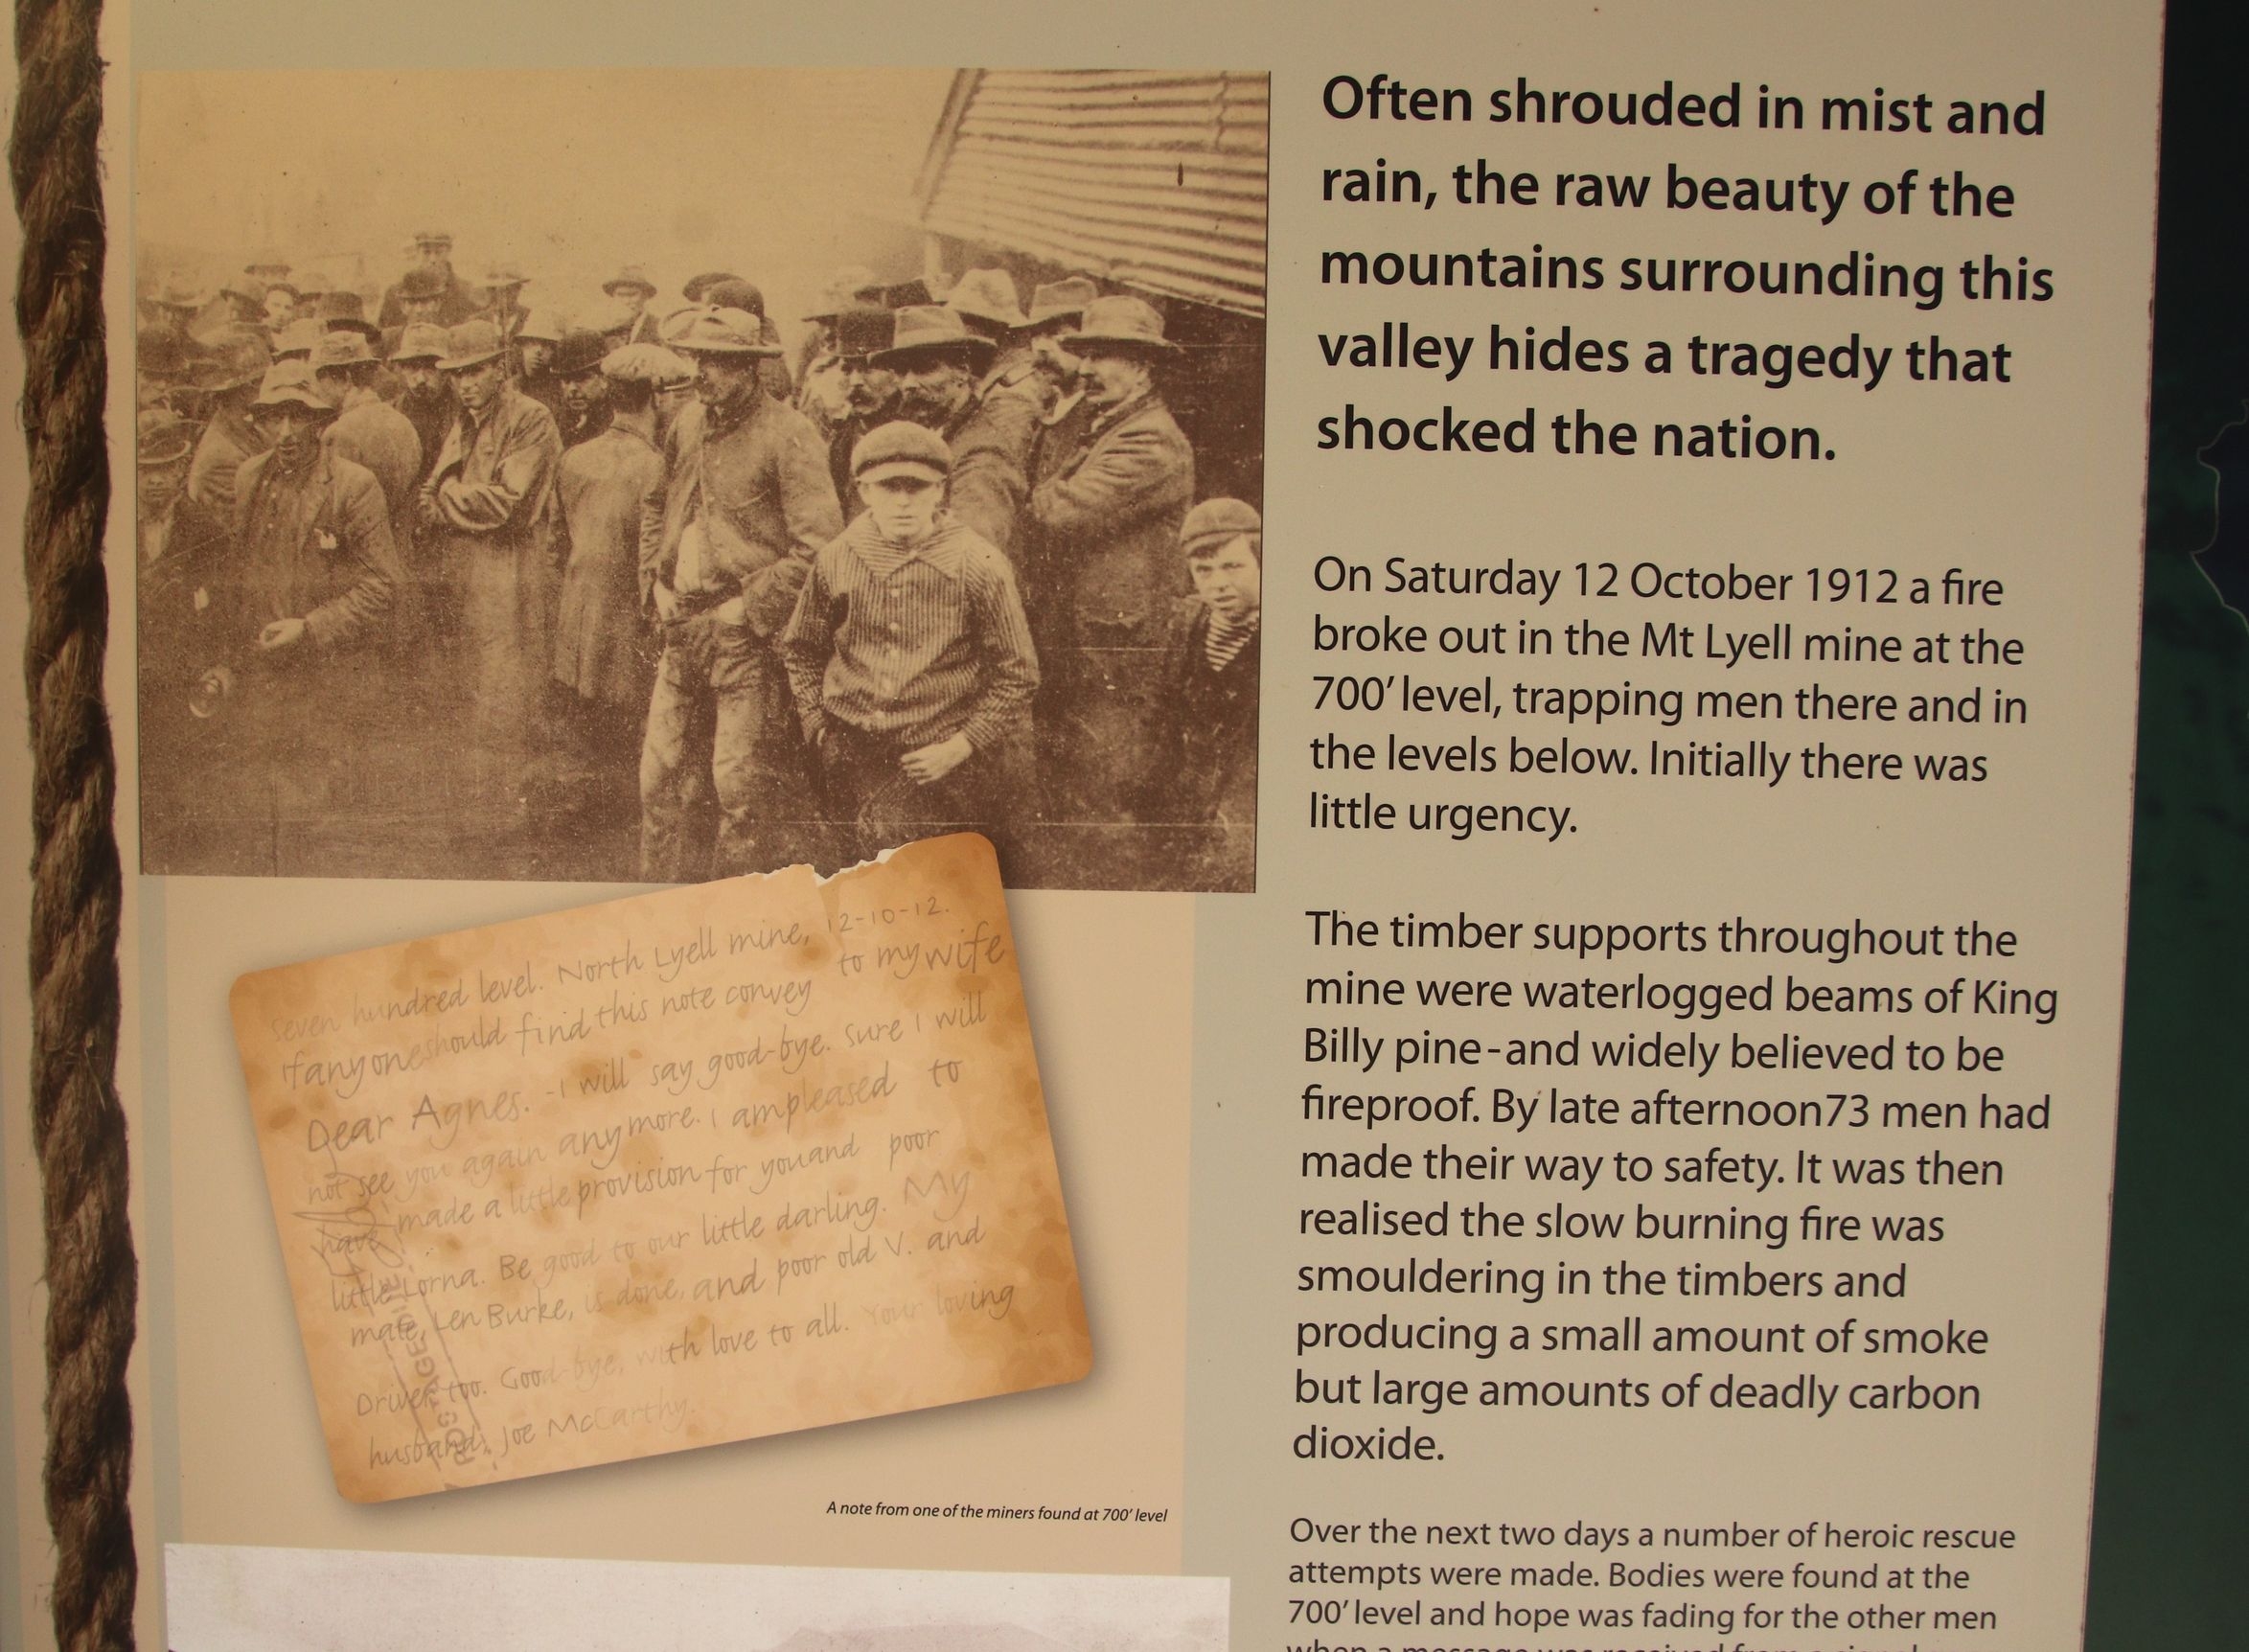 Often shrouded in mist and
rain, the raw beauty of the
mountains surrounding this
valley hides a tragedy that
shocked the nation.
On Saturday 12 October 1912 a fire
broke out in the Mt Lyell mine at the
700' level, trapping men there and in
the levels below. Initially there was
little urgency.
The timber supports throughout the
mine were waterlogged beams of King
Billy pine-and widely believed to be
fireproof. By late afternoon73 men had
made their way to safety. It was then
realised the slow burning fire was
smouldering in the timbers and
producing a small amount of smoke
but large amounts of deadly carbon
dioxide.
Over the next two days a number of heroic rescue
attempts were made. Bodies were found at the
700' level and hope was fading for the other men
when a message was received from a signal
seven hundred level. North Lyell mine, 12-10-12.
If anyone should find this note convey to my wife
Dear Agnes. -I will say good-bye. Sure I will
not see you again anymore. I am pleased to
have made a little provision for you and poor
little Lorna. Be good to our little darling. My
mate, Len Burke, is done, and poor old V. and
Driver too. Good-bye, with love to all. Your loving
husband, Joe McCarthy.
POSTAGE
A note from one of the miners found at 700' level